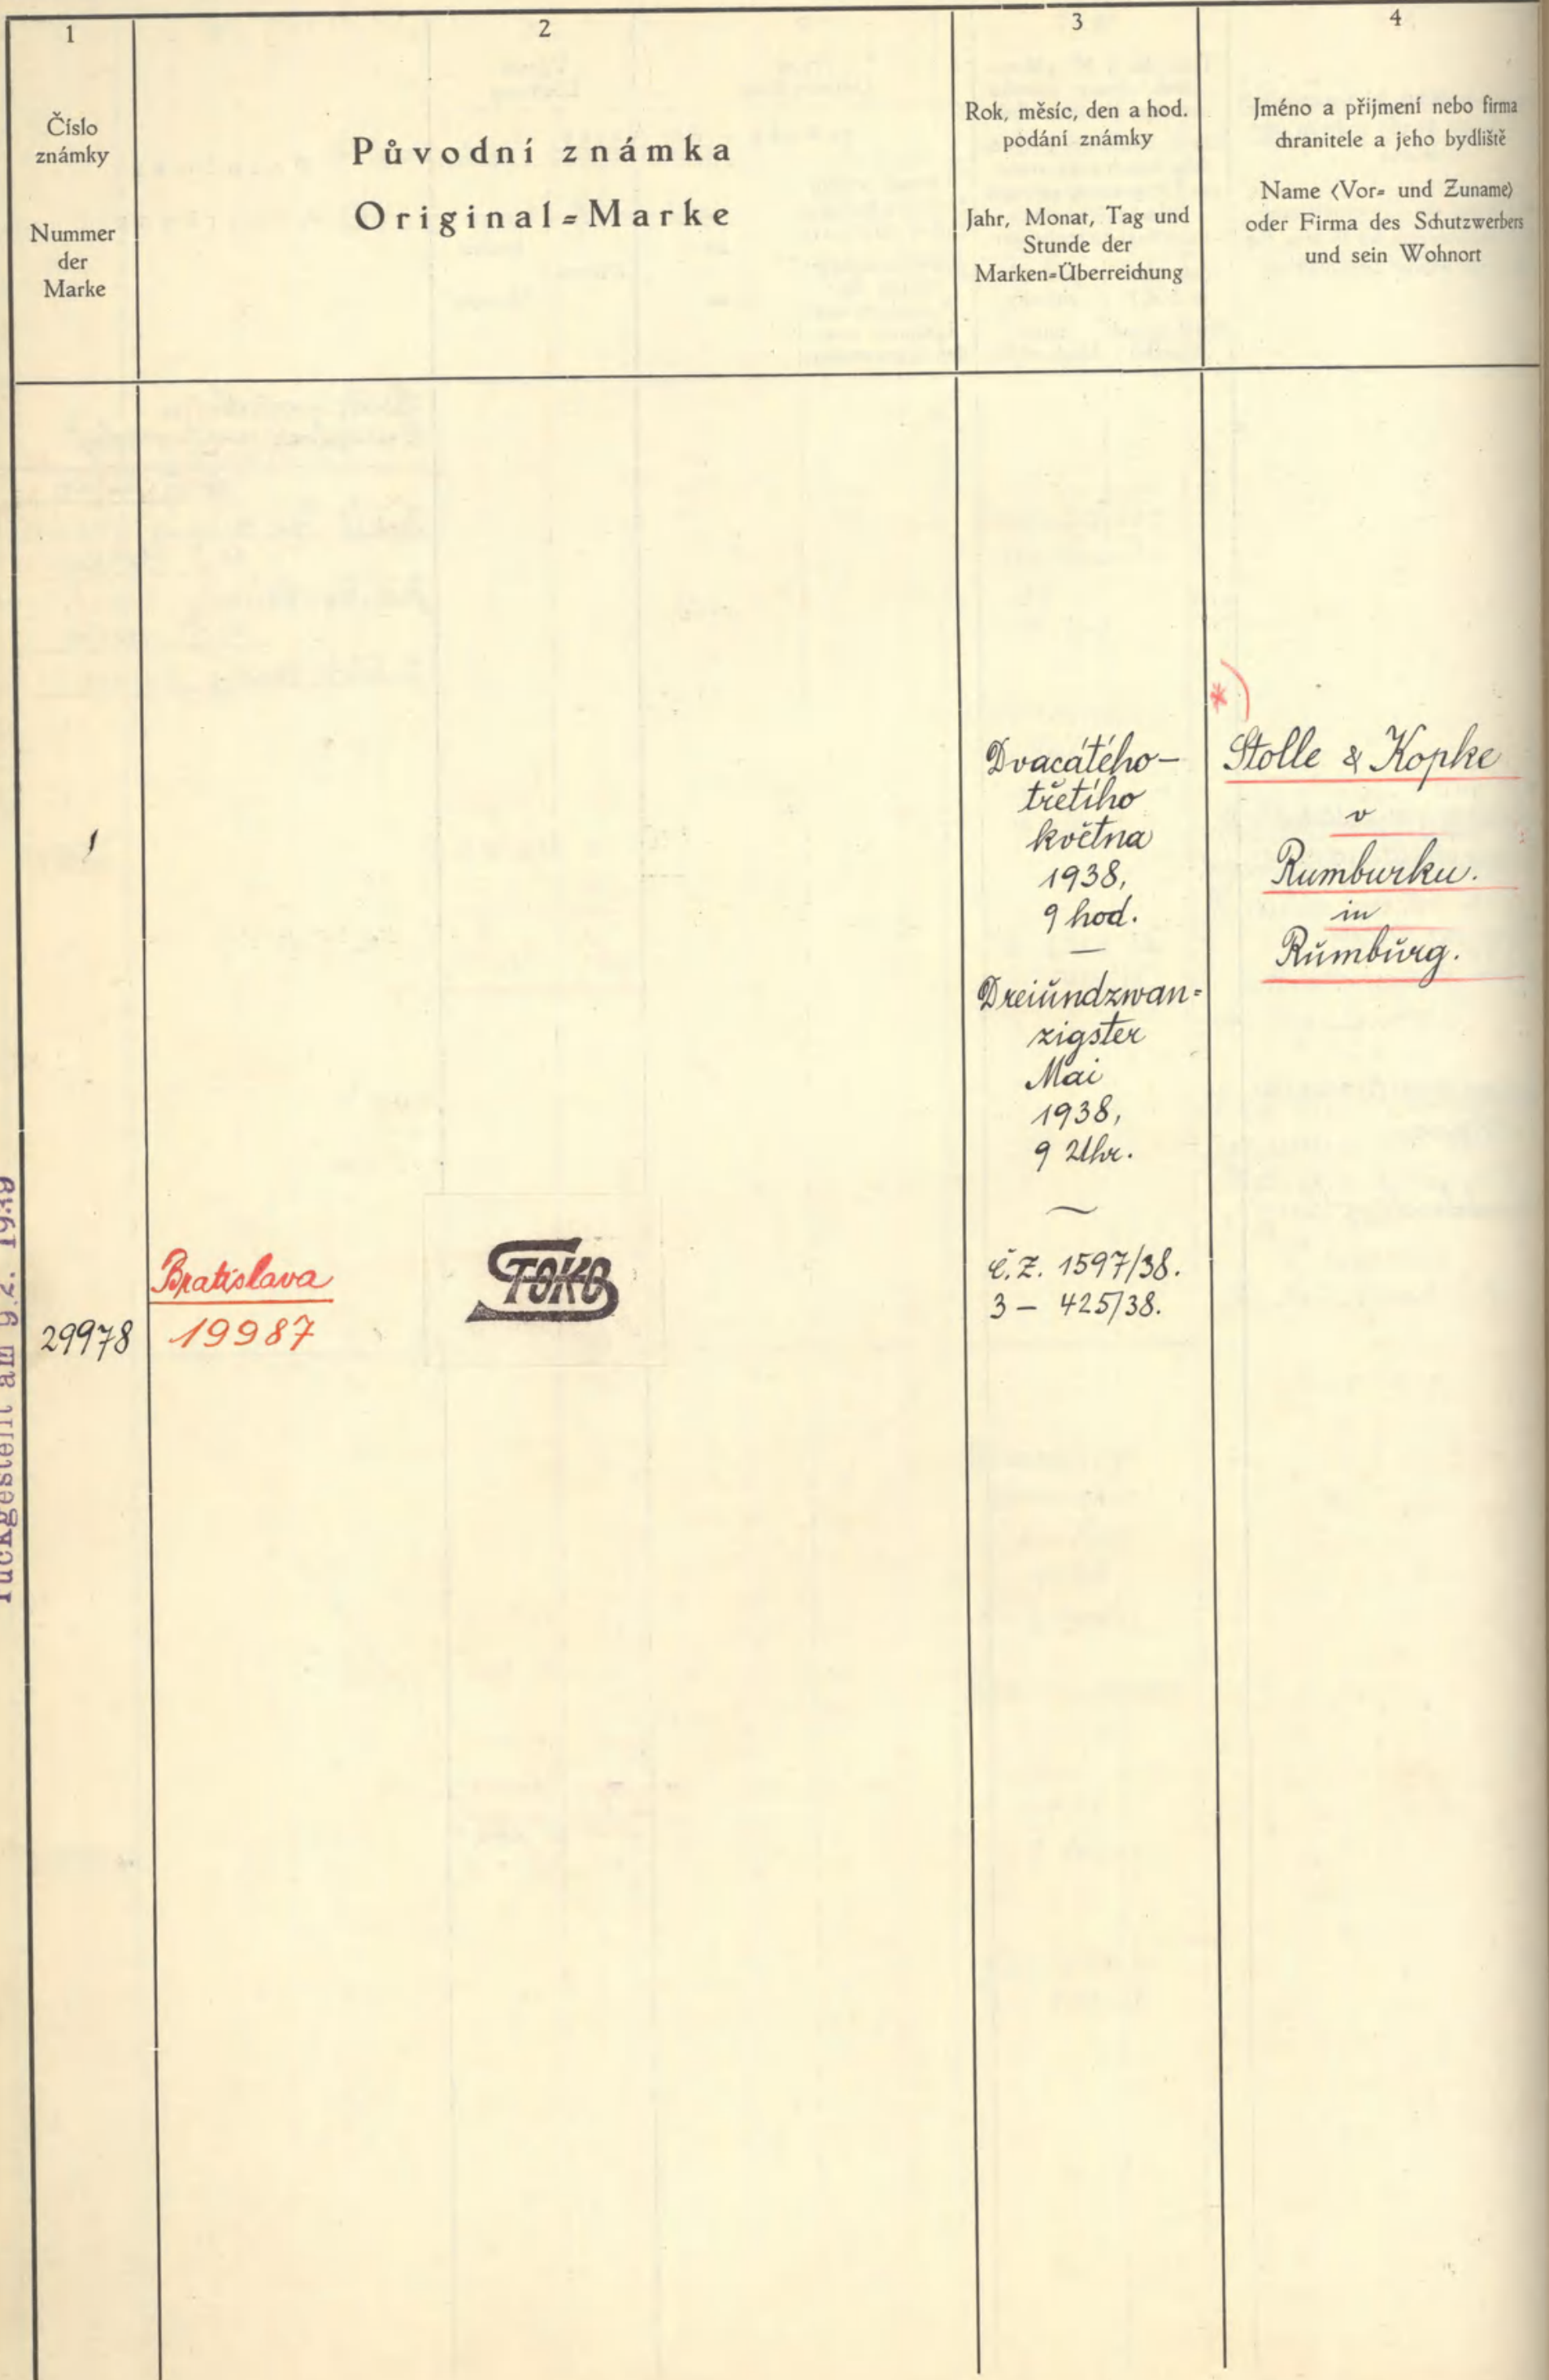 1
Číslo
známky
Nummer
der
Marke
2
Původní známka
Original=Marke
3
Rok, měsíc, den a hod.
podání známky
Jahr, Monat, Tag und
Stunde der
Marken=Überreichung
4
Jméno a přijmení nebo firma
chranitele a jeho bydliště
Name (Vor= und Zuname)
oder Firma des Schutzwerbers
und sein Wohnort
29978
Bratislava
19987
STOKO
Dvacátého-
třetího
května
1938,
9 hod.
Dreiundzwan=
zigster
Mai
1938,
9 Uhr.
č.z. 1597/38.
3 — 425/38.
*)
Stolle & Kopke
v
Rumburku.
in
Rumburg.
rückgestellt am 9.2. 1939